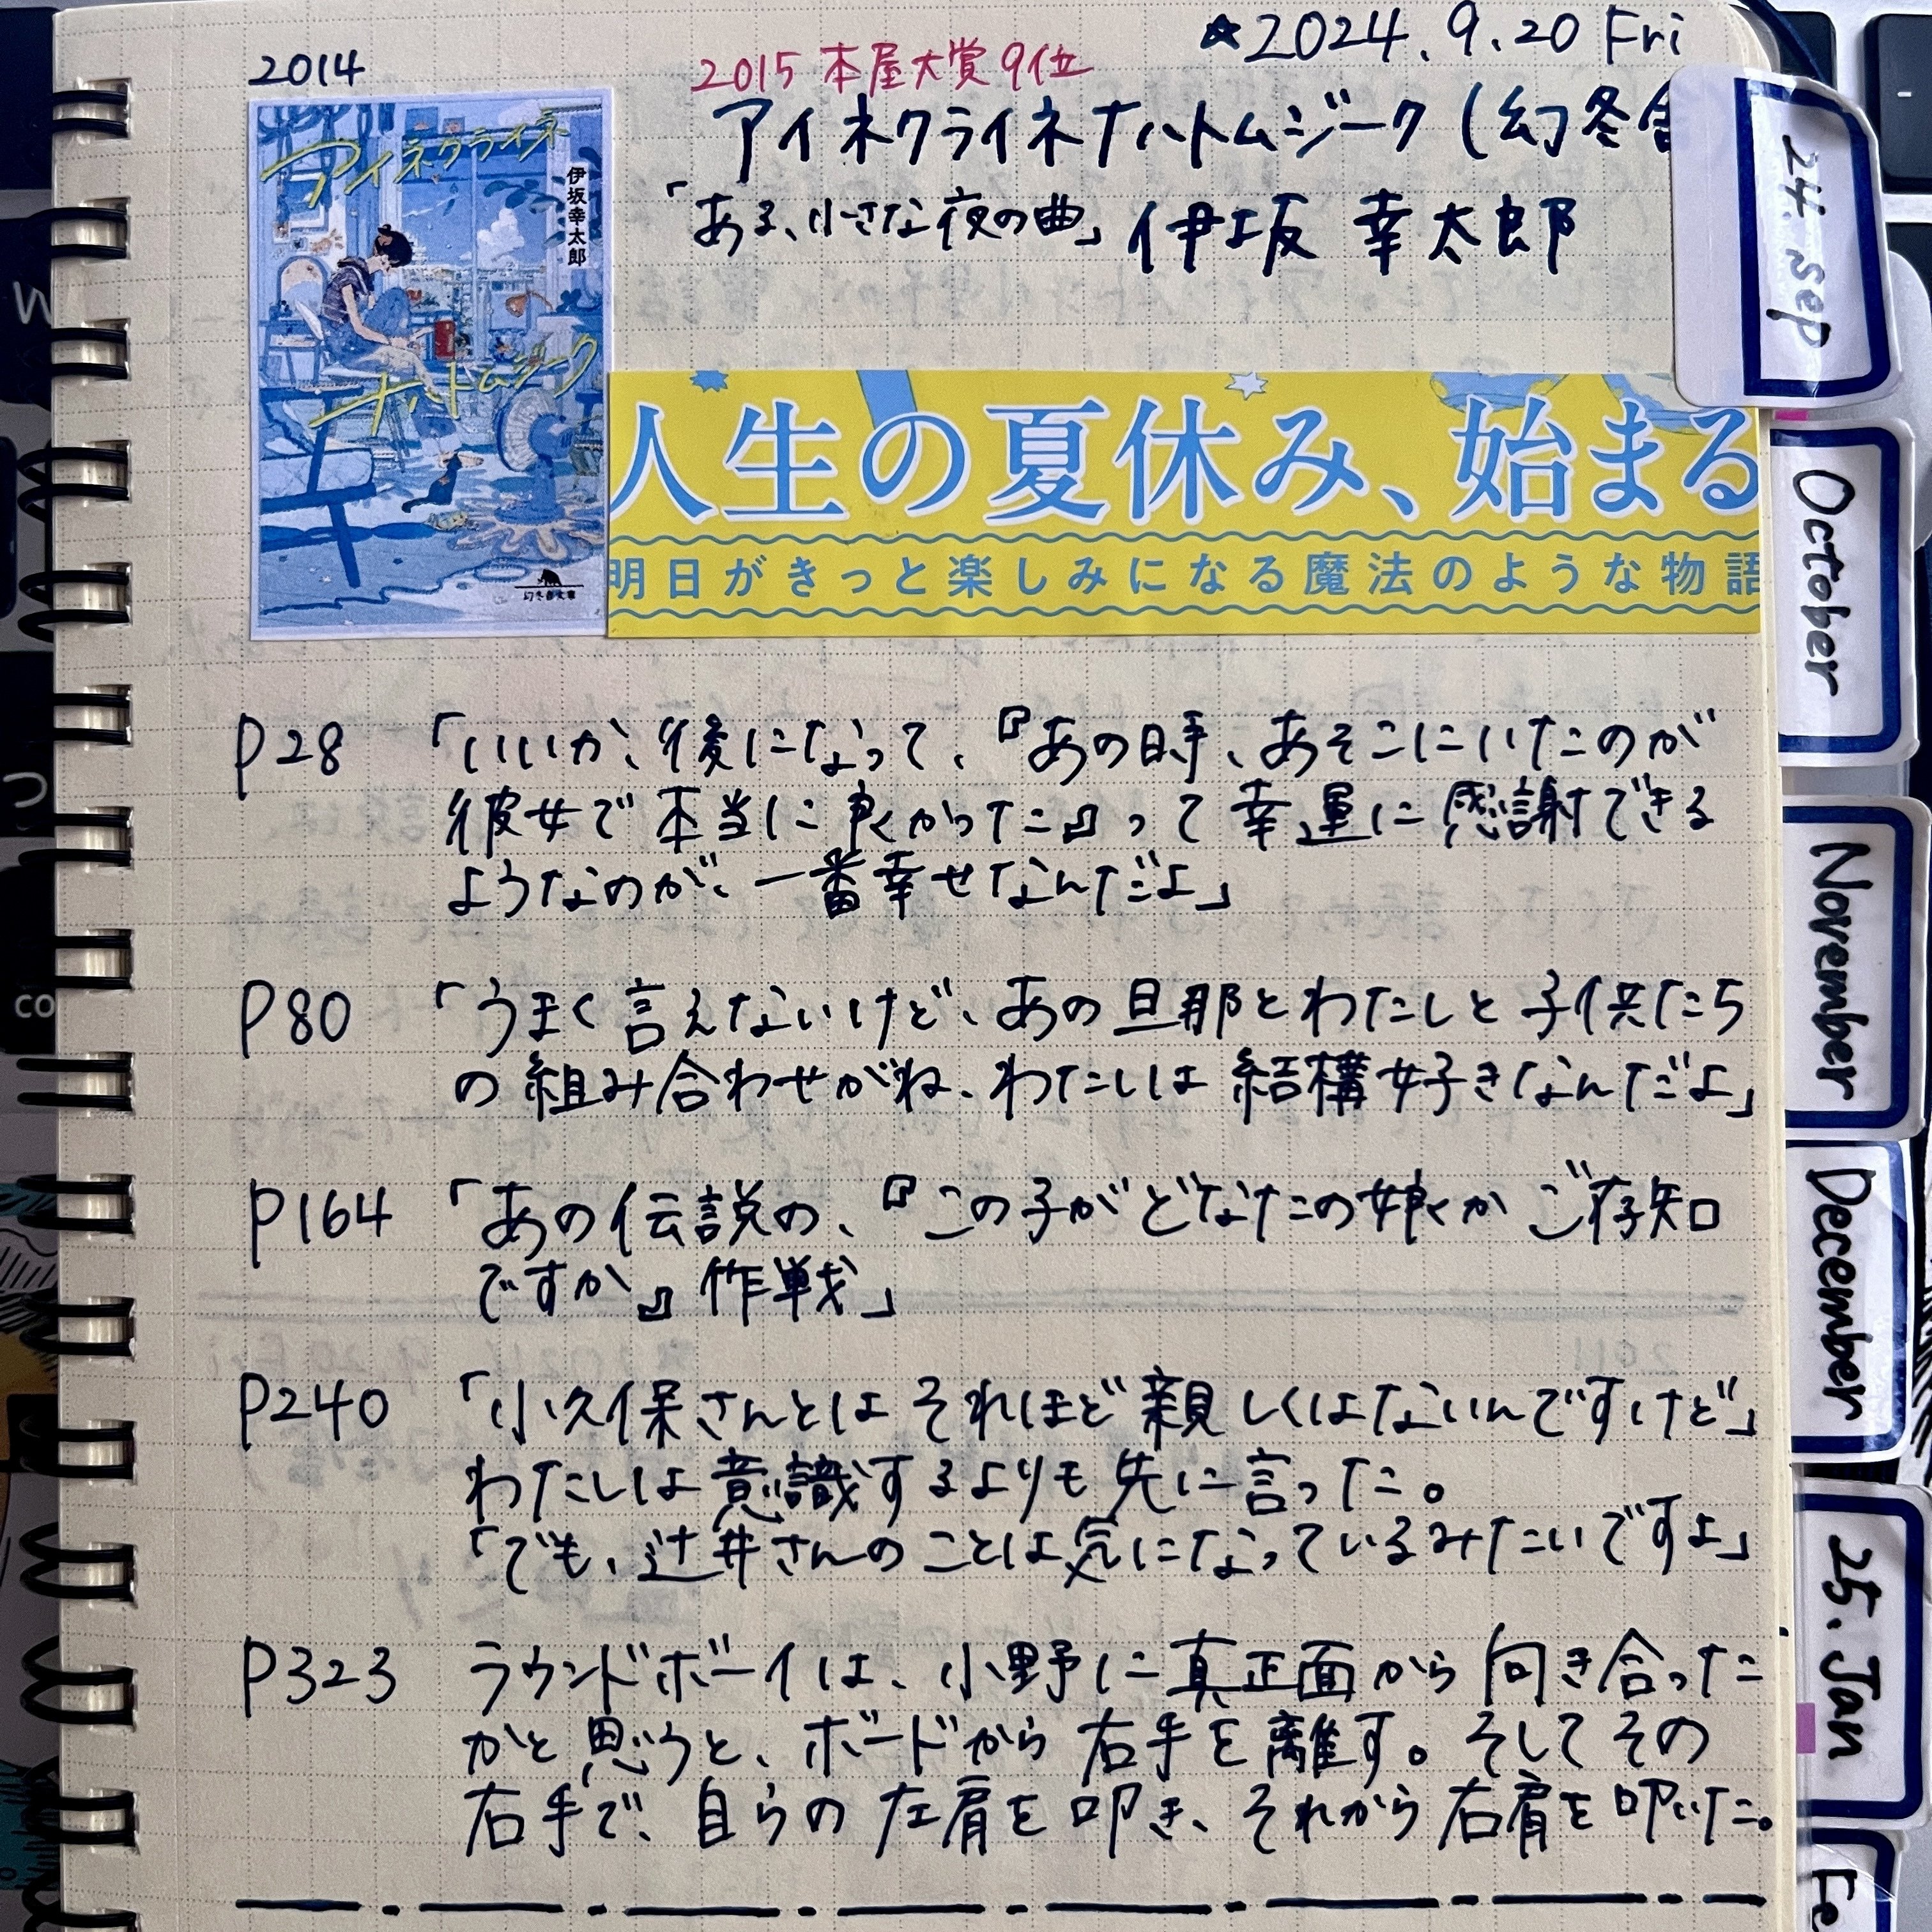 ★2024.9.20 Fri
2014
2015 本屋大賞 9位
アイネクライネナハトムジーク (幻冬舎
「ある、小さな夜の曲」 伊坂 幸太郎
アイネクライネ
ナハトムジーク
伊坂幸太郎
幻冬舎文庫
人生の夏休み、始まる
明日がきっと楽しみになる魔法のような物語
P28 「いいか、後になって、『あの時、あそこにいたのが
彼女で本当に良かった』って幸運に感謝できる
ようなのが、一番幸せなんだよ」
P80 「うまく言えないけど、あの旦那とわたしと子供たち
の組み合わせがね、わたしは結構好きなんだよ」
P164 「あの伝説の、『この子がどなたの娘かご存知
ですか』作戦」
P240 「小久保さんとはそれほど親しくはないんですけど」
わたしは意識するよりも先に言った。
「でも、辻井さんのことは気になっているみたいですよ」
P323 ラウンドボーイは、小野に真正面から向き合った
かと思うと、ボードから右手を離す。そしてその
右手で、自らの左肩を叩き、それから右肩を叩いた。
24. Sep
October
November
December
25. Jan
Fe
W
つ
co
-